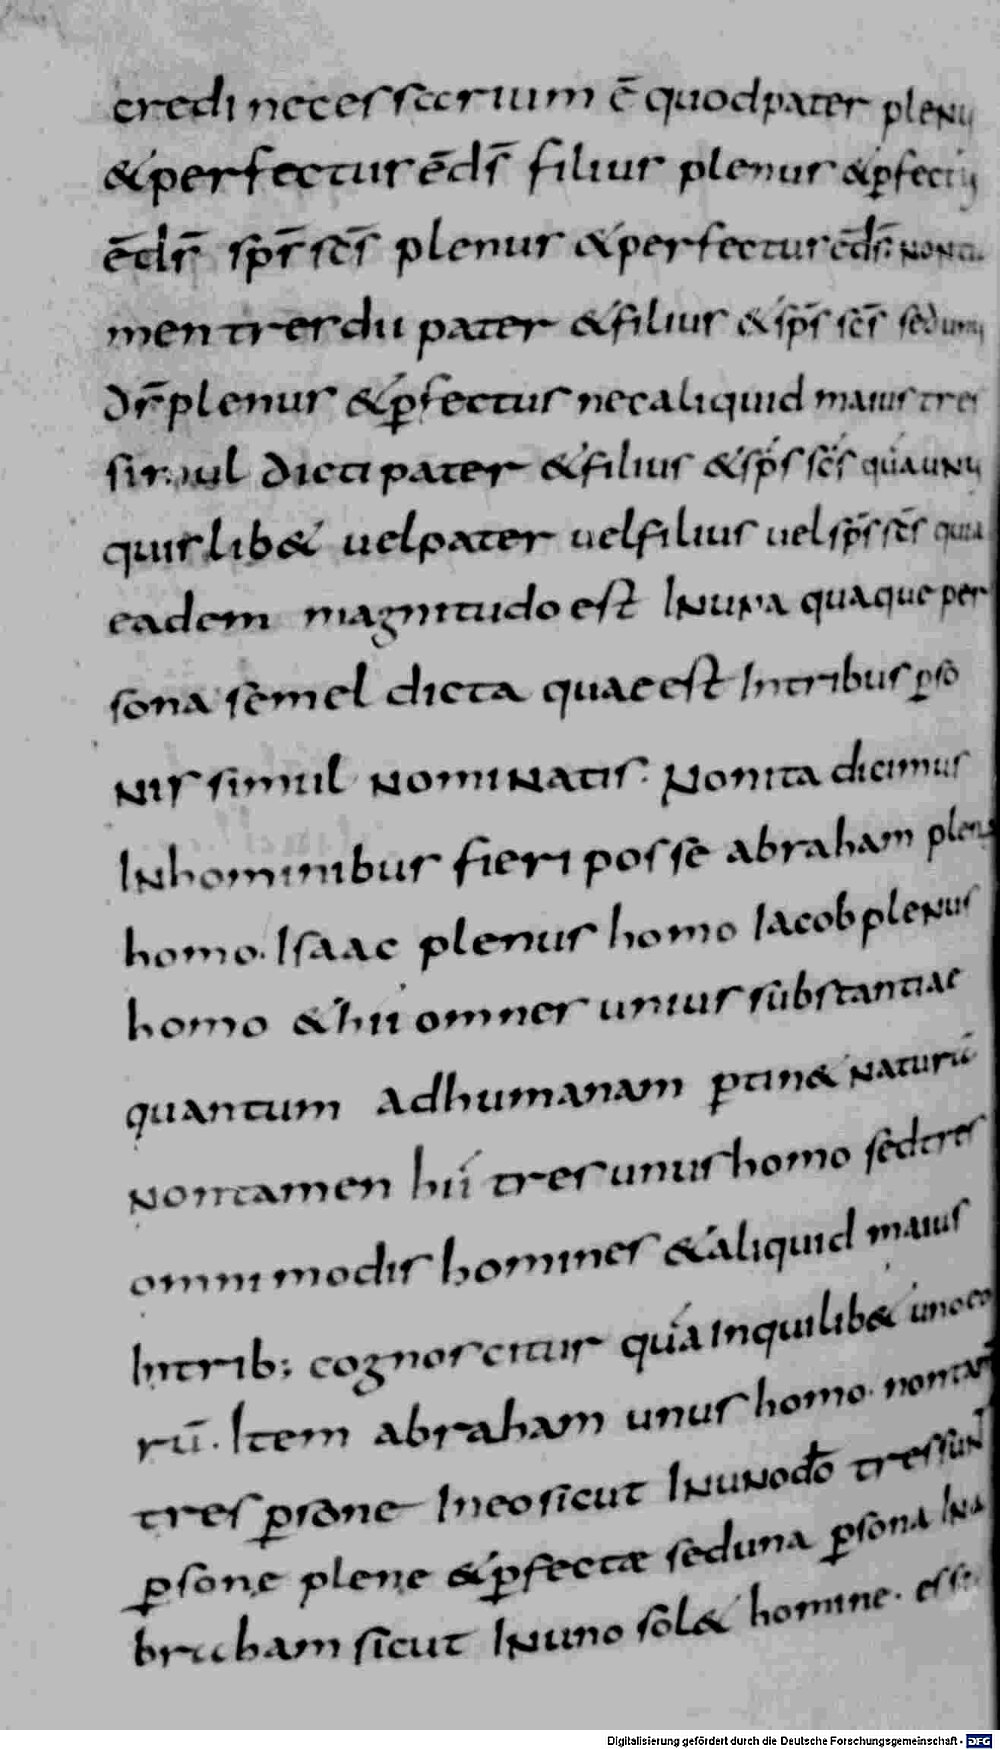 credi necessarium ē quod pater plenus
& perfectus ē ds̄ filius plenus & ꝑfectus
ē ds̄ sp̄s sc̄s plenus & perfectus ē ds̄. non ta
men tres dii pater & filius & sp̄s sc̄s sed unus
ds̄ plenus & ꝑfectus nec aliquid maius tres
simul dicti pater & filius & sp̄s sc̄s quá unus
quislib& uel pater uel filius uel sp̄s sc̄s quia
eadem magnitudo est In una quaque per
sona semel dicta quae est Intribus ꝑso
nis simul nominatis. Non ita dicimus
Inhominibus fieri posse abraham plenus
homo. Isaac plenus homo Iacob plenus
homo & hii omnes unius substantiae
quantum ad humanam ꝑtin& naturā
non tamen hii tres unus homo sed tres
omnimodis homines & aliquid maius
Intrib; cognoscitur quá inquilib& uno eo
rū. Item abraham unus homo. non tam̄
tres ꝑsone In eo sicut In uno dō tres sunt
ꝑsone plene & ꝑfectæ sed una ꝑsona In a
braham sicut In uno sol& homine. esse